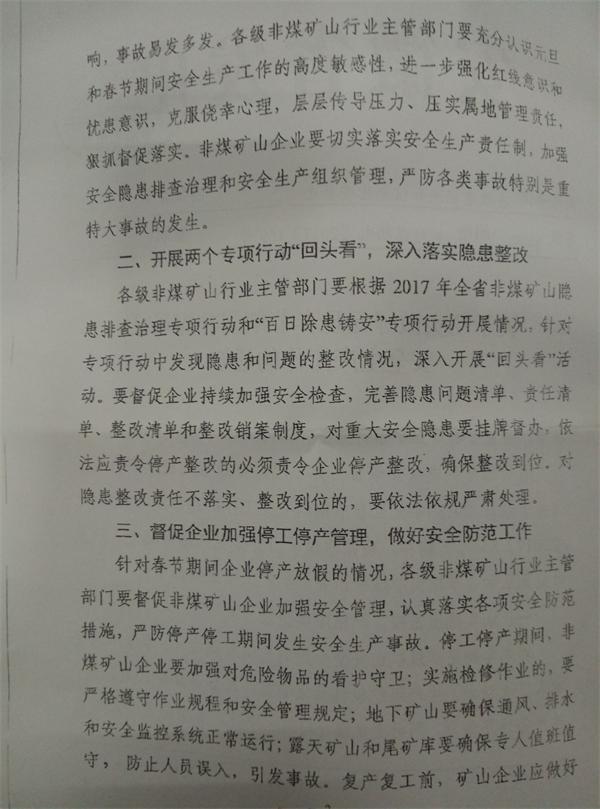 响，事故易发多发。各级非煤矿山行业主管部门要充分认识元旦
和春节期间安全生产工作的高度敏感性，进一步强化红线意识和
忧患意识，克服侥幸心理，层层传导压力、压实属地管理责任，
狠抓督促落实。非煤矿山企业要切实落实安全生产责任制，加强
安全隐患排查治理和安全生产组织管理，严防各类事故特别是重
特大事故的发生。
二、开展两个专项行动“回头看”，深入落实隐患整改
各级非煤矿山行业主管部门要根据 2017 年全省非煤矿山隐
患排查治理专项行动和“百日除患铸安”专项行动开展情况，针对
专项行动中发现隐患和问题的整改情况，深入开展“回头看”活
动。要督促企业持续加强安全检查，完善隐患问题清单、责任清
单、整改清单和整改销案制度，对重大安全隐患要挂牌督办，依
法应责令停产整改的必须责令企业停产整改，确保整改到位。对
隐患整改责任不落实、整改到位的，要依法依规严肃处理。
三、督促企业加强停工停产管理，做好安全防范工作
针对春节期间企业停产放假的情况，各级非煤矿山行业主管
部门要督促非煤矿山企业加强安全管理，认真落实各项安全防范
措施，严防停产停工期间发生安全生产事故。停工停产期间，非
煤矿山企业要加强对危险物品的看护守卫；实施检修作业的，要
严格遵守作业规程和安全管理规定；地下矿山要确保通风、排水
和安全监控系统正常运行；露天矿山和尾矿库要确保专人值班值
守，防止人员误入，引发事故。复产复工前，矿山企业应做好